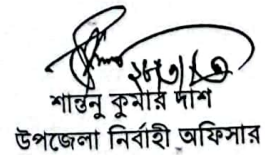 শান্তনু কুমার দাশ
উপজেলা নির্বাহী অফিসার